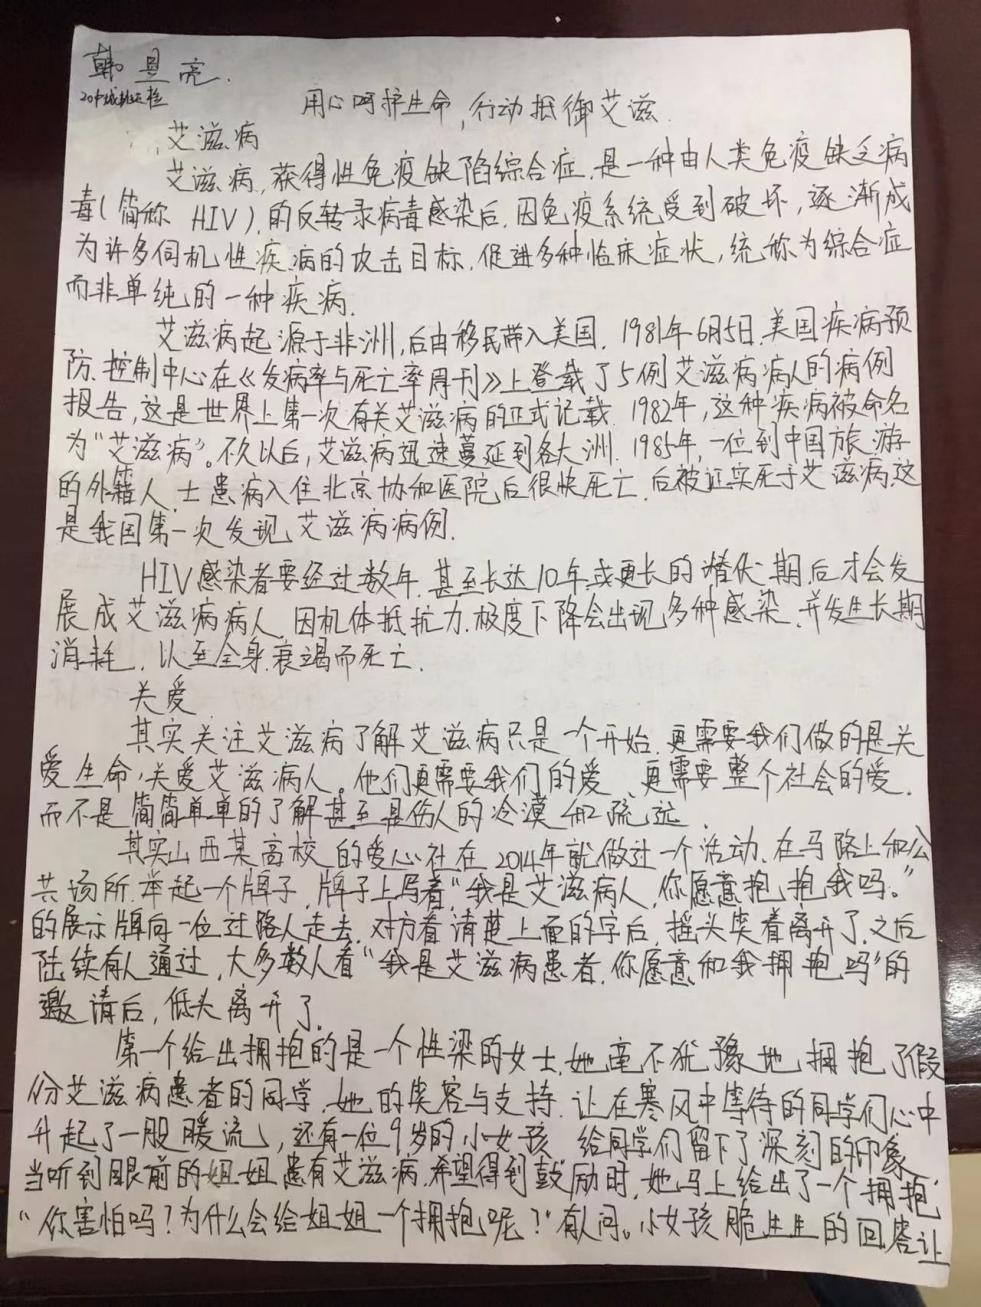 韩昱亮.
用心呵护生命,行动抵御艾滋.
艾滋病
艾滋病,获得性免疫缺陷综合症.是一种由人类免疫缺乏病
毒(简称 HIV),的反转录病毒感染后,因免疫系统受到破坏,逐渐成
为许多伺机性疾病的攻击目标,促进多种临床症状,统称为综合症
而非单纯的一种疾病.
艾滋病起源于非洲,后由移民带入美国. 1981年6月5日,美国疾病预
防、控制中心在《发病率与死亡率周刊》上登载了5例艾滋病病人的病例
报告,这是世界上第一次有关艾滋病的正式记载. 1982年,这种疾病被命名
为“艾滋病”。不久以后,艾滋病迅速蔓延到各大洲. 1985年,一位到中国旅游
的外籍人士患病入住北京协和医院后很快死亡,后被证实死于艾滋病,这
是我国第一次发现艾滋病病例.
HIV感染者要经过数年、甚至长达10年或更长的潜伏期后才会发
展成艾滋病病人,因机体抵抗力极度下降会出现多种感染,并发生长期
消耗,以至全身衰竭而死亡.
关爱
其实关注艾滋病了解艾滋病只是一个开始.更需要我们做的是关
爱生命,关爱艾滋病人。他们更需要我们的爱、更需要整个社会的爱.
而不是简简单单的了解甚至是伤人的冷漠和疏远.
其实山西某高校的爱心社在2014年就做过一个活动.在马路上和公
共场所举起一个牌子,牌子上写着“我是艾滋病人,你愿意抱抱我吗。”
的展示牌向一位过路人走去,对方看清楚上面的字后,摇头笑着离开了.之后
陆续有人通过,大多数人看“我是艾滋病患者.你愿意和我拥抱吗”的
邀请后,低头离开了.
第一个给出拥抱的是一个姓梁的女士,她毫不犹豫地拥抱了假
份艾滋病患者的同学.她的笑容与支持.让在寒风中等待的同学们心中
升起了一股暖流,还有一位9岁的小女孩给同学们留下了深刻的印象,
当听到眼前的姐姐患有艾滋病,希望得到鼓励时,她马上给出了一个拥抱,
“你害怕吗?为什么会给姐姐一个拥抱呢?”有人问。小女孩脆生生的回答让